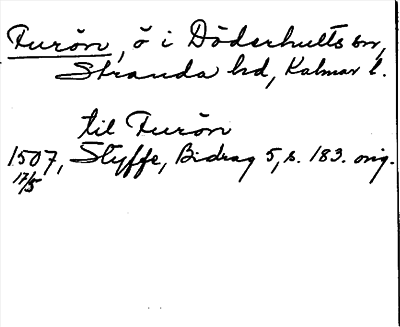 Furön, ö i Döderhults sn,
Stranda hd, Kalmar l.
til Furön
1507, Styffe, Bidrag 5, s. 183. orig.
17/5